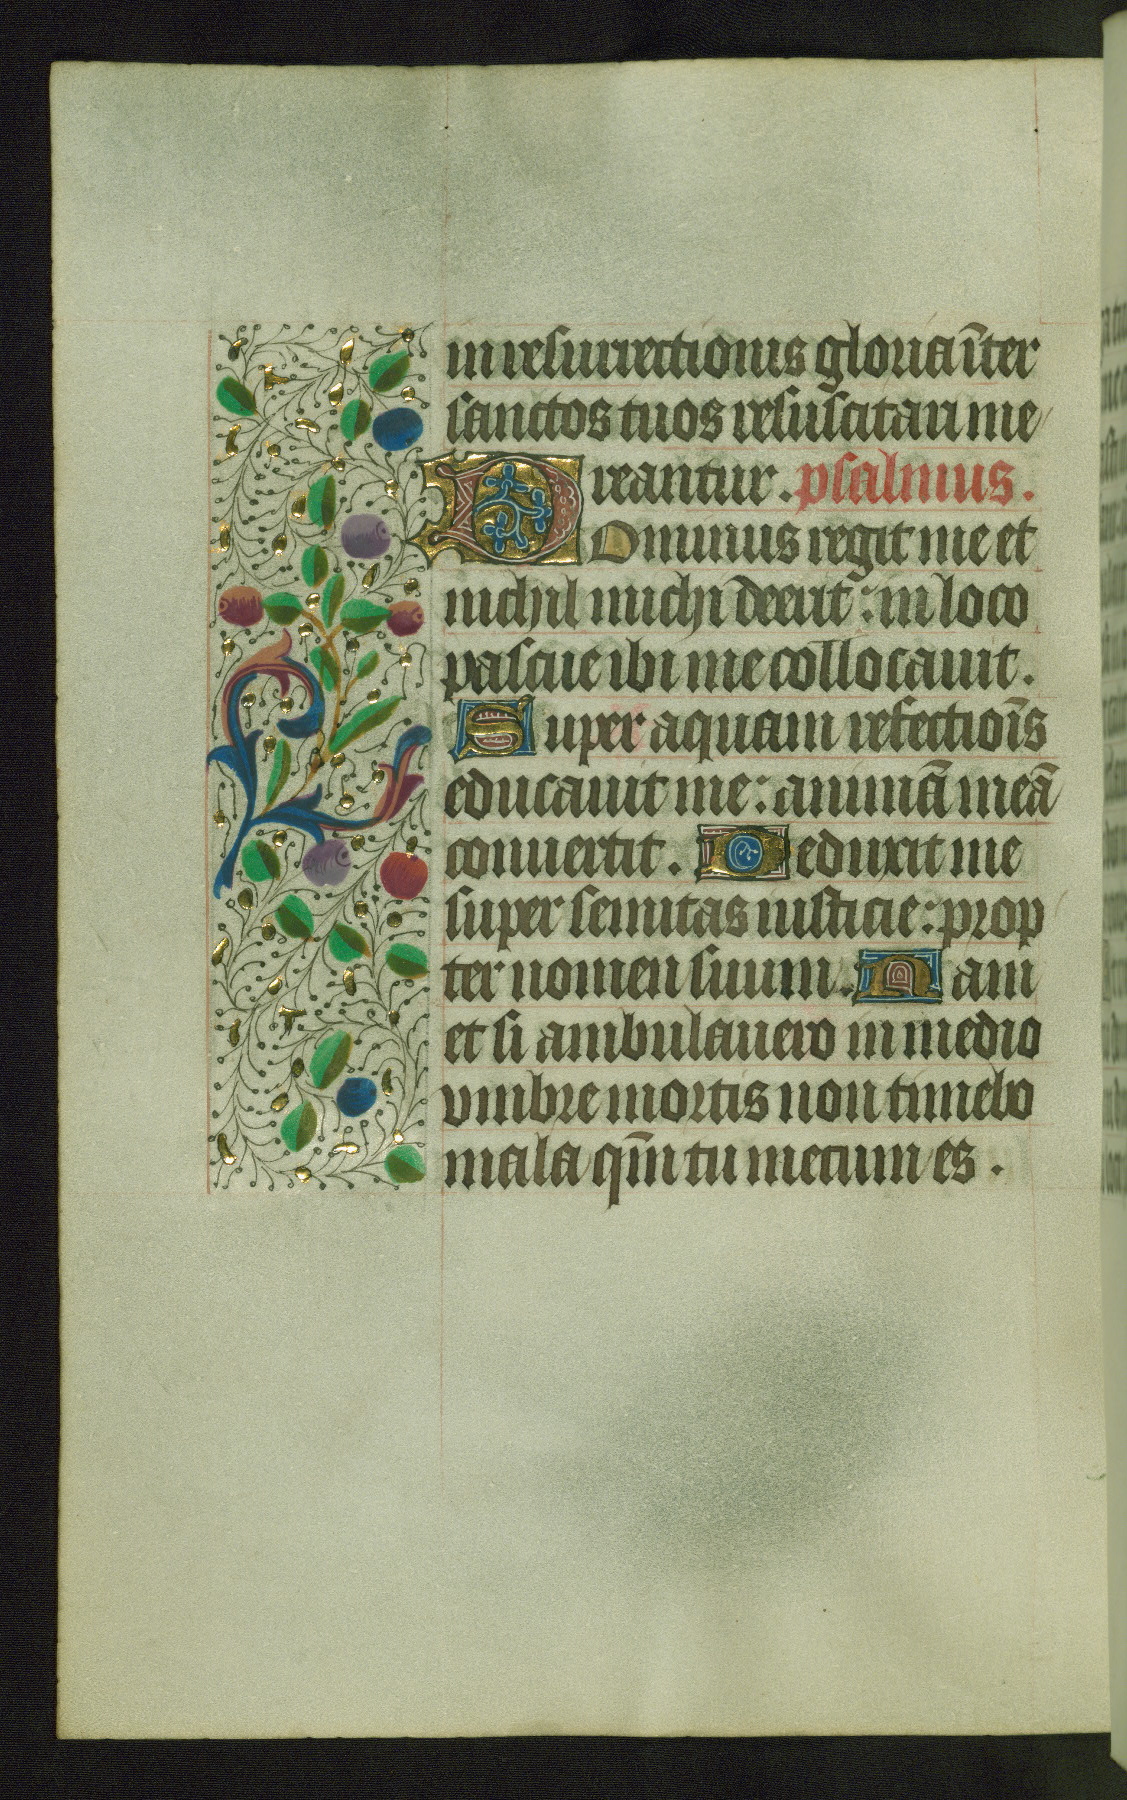 in resurrectionis gloria īter
sanctos tuos resuscitari me
reantur. psalmus.
Dominus regit me et
nichil michi deerit: in loco
pascue ibi me collocauit.
Super aquam refectiōis
educauit me: animā meā
conuertit. Deduxit me
super semitas iusticie: prop
ter nomen suum. Nam
et si ambulauero in medio
vmbre mortis non timebo
mala qm̄ tu mecum es.